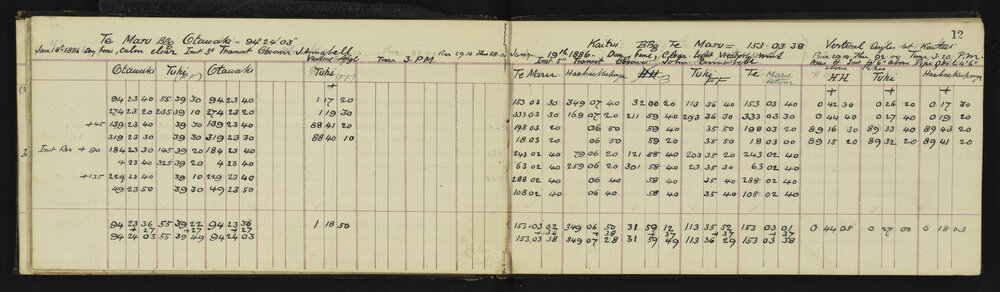 Te Maru Brg Otawaki = 94° 24' 03"
Jan 18th 1886 Day Fine, calm clear Inst 5" Transit Observer J Annabell
Vertical Angl
Time 3 PM
Otawaki Tuhi (FF) Otawaki Tuhi (FF)
+
94 23 40 55 39 30 94 23 40 1 17 20
274 23 20 235 39 10 274 23 20 1 19 30
+45 139 23 40 39 30 139 23 40 88 41 20
319 23 30 39 30 319 23 30 88 40 10
Inst Rev + 90 184 23 30 145 39 20 184 23 40
4 23 40 325 39 20 4 23 40
+135 229 23 40 39 10 229 23 40
49 23 50 39 30 49 23 50
94 23 36 55 39 22 94 23 36 1 18 50
+27 +27 +27
94 24 03 55 39 49 94 24 03
12
Kaitui Brg Te Maru = 153.03 38
19th 1886 - Day Fine,
Inst 5" Transit Observer John Annabell
Vertical Angles at Kaitui
Te Maru HH Tuhi FF Te Maru
HH Tuhi
+ + +
153 03 30 349 07 40 32 00 20 113 36 40 153 03 40 0 42 30 0 26 20 0 17 30
333 03 30 169 07 20 211 59 40 293 36 30 333 03 30 0 44 40 0 27 40 0 19 20
198 03 20 06 50 59 40 35 50 198 03 20 89 16 30 89 33 40 89 43 20
18 03 20 06 50 59 20 35 50 18 03 00 89 15 20 89 32 20 89 41 20
243 02 40 79 06 20 121 58 40 203 35 20 243 02 40
63 02 40 259 06 20 301 58 40 23 35 30 63 02 40
288 02 40 06 40 58 40 35 40 288 02 40
108 02 40 06 40 58 40 35 40 108 02 40
153.03 02 349 06 50 31 59 12 113 35 52 153 03 01 0 44 05 0 27 00 0 18 03
+36 +38 +37 +37 +37
153.03 38 349 07 28 31 59 49 113 36 29 153 03 38